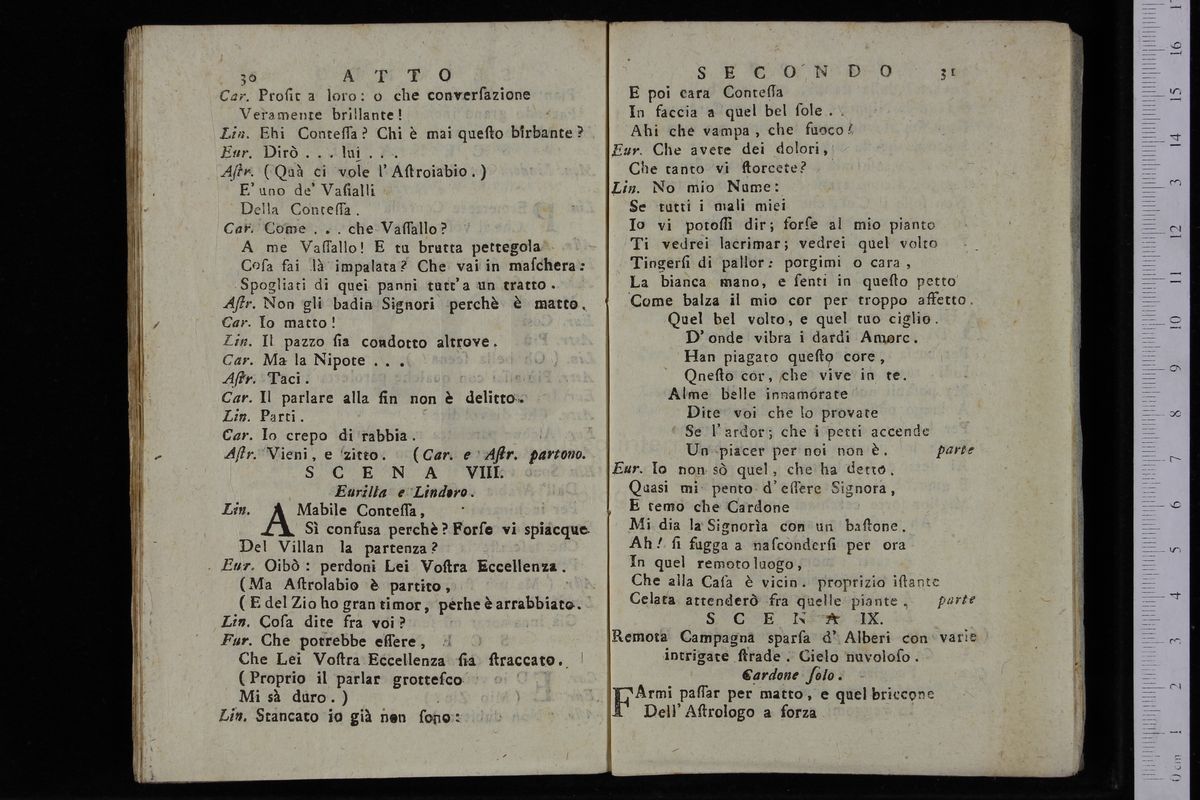 30 ATTO
Car. Profit a loro: o che converſazione
Veramente brillante!
Lin. Ehi Conteſſa? Chi è mai queſto birbante?
Eur. Dirò . . . lui . . .
Aſtr. (Quà ci vole l'Aſtroiabio.)
E' uno de' Vaſialli
Della Conteſſa.
Car. Come . . . che Vaſſallo?
A me Vaſſallo! E tu brutta pettegola
Coſa fai là impalata? Che vai in maſchera:
Spogliati di quei panni tutt'a un tratto.
Aſtr. Non gli badin Signori perchè è matto.
Car. Io matto!
Lin. Il pazzo ſia condotto altrove.
Car. Ma la Nipote . . .
Aſtr. Taci.
Car. Il parlare alla fin non è delitto.
Lin. Parti.
Car. Io crepo di rabbia.
Aſtr. Vieni, e zitto. (Car. e Aſtr. partono.
SCENA VIII.
Eurilla e Lindoro.
Lin. AMabile Conteſſa,
Sì confuſa perchè? Forſe vi spiacque
Del Villan la partenza?
Eur. Oibò: perdoni Lei Voſtra Eccellenza.
(Ma Aſtrolabio è partito,
(E del Zio ho gran timor, perhe è arrabbiato.
Lin. Coſa dite fra voi?
Fur. Che potrebbe eſſere,
Che Lei Voſtra Eccellenza ſia ſtraccato.
(Proprio il parlar grotteſco
Mi sà duro.)
Lin. Stancato io già non ſono:
SECONDO 31
E poi cara Conteſſa
In faccia a quel bel ſole . .
Ahi che vampa, che fuoco!
Eur. Che avete dei dolori,
Che tanto vi ſtorcete?
Lin. No mio Nume:
Se tutti i mali miei
Io vi potoſſi dir; forſe al mio pianto
Ti vedrei lacrimar; vedrei quel volto
Tingerſi di pallor: porgimi o cara,
La bianca mano, e ſenti in queſto petto
Come balza il mio cor per troppo affetto.
Quel bel volto, e quel tuo ciglio.
D'onde vibra i dardi Amore.
Han piagato queſto core,
Qneſto cor, che vive in te.
Alme belle innamorate
Dite voi che lo provate
Se l'ardor; che i petti accende
Un piacer per noi non è. parte
Eur. Io non sò quel, che ha detto.
Quaſi mi pento d'eſſere Signora,
E temo che Cardone
Mi dia la Signorìa con un baſtone.
Ah! ſi fugga a naſconderſi per ora
In quel remoto luogo,
Che alla Caſa è vicin. proprizio iſtante
Celata attenderò fra quelle piante. parte
SCENA IX.
Remota Campagna sparſa d'Alberi con varie
intrigate ſtrade. Cielo nuvoloſo.
Cardone ſolo.
FArmi paſſar per matto, e quel briccone
Dell'Aſtrologo a forza
0 cm 1 2 3 4 5 6 7 8 9 10 11 12 13 14 15 16 17